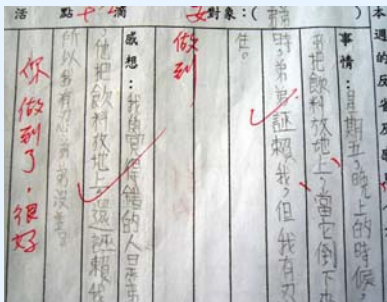 本週的反
對象:(
事情:星期五晚上的時候,
弟把飲料放地上,當它倒下來
時弟弟誣賴我,但我有忍
住。
做到
感想:我的覺得錯的人是弟
他把飲料放地上還誣賴我
所以我有忍弟弟沒
活點滴
你做到了,很好